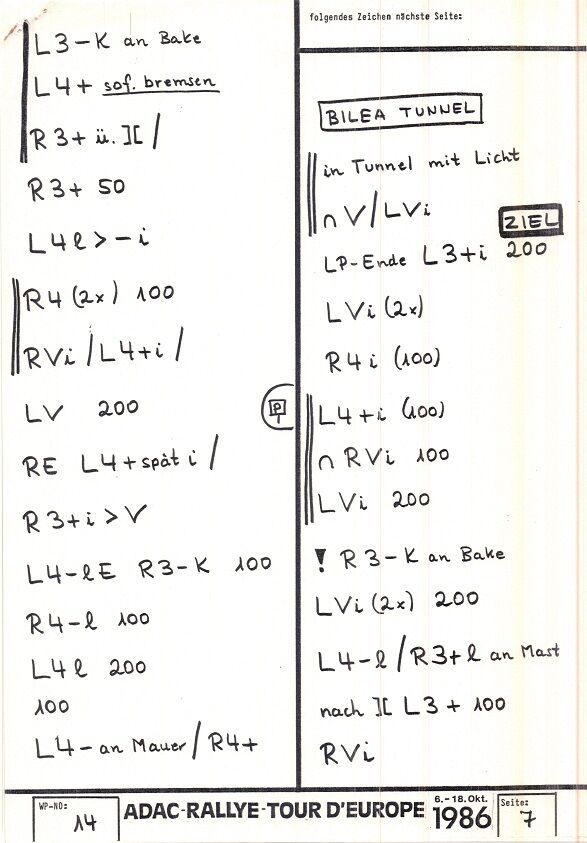 L3-K an Bake
L4+ sof. bremsen
R3+ ü. ][ /
R3+ 50
L4l > - i
R4 (2x) 100
RVi / L4+i /
LV 200
RE L4+ spät i /
R3+i > V
L4-lE R3-K 100
R4-l 100
L4l 200
100
L4- an Mauer / R4+
folgendes Zeichen nächste Seite:
BILEA TUNNEL
in Tunnel mit Licht
∩ V / LVi
ZIEL
LP-Ende L3+i 200
LVi (2x)
R4i (100)
P
L4+i (100)
∩ RVi 100
LVi 200
! R3-K an Bake
LVi (2x) 200
L4-l / R3+l an Mast
nach ][ L3+ 100
RVi
WP-NO: 14
ADAC-RALLYE-TOUR D'EUROPE
6.-18.Okt.
1986
Seite: 7